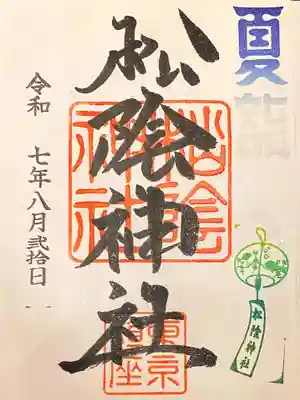 夏詣
松陰神社
松陰神社
東京鎮座
松陰神社
令和 七年八月弐拾日